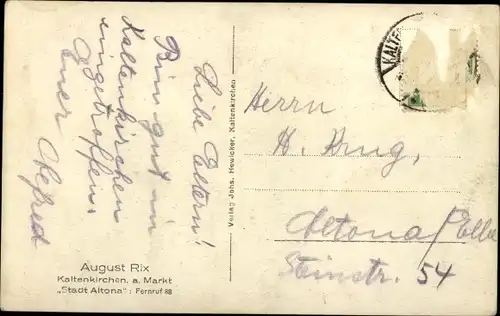 Liebe Eltern!
Bin gut in
Kaltenkirchen
eingetroffen.
Euer Alfred
August Rix
Kaltenkirchen, a. Markt
„Stadt Altona" : Fernruf 88
Verlag Johs. Hewicker, Kaltenkirchen
KALTE
Herrn
H. Krug,
Altona/Elbe
Steinstr. 54